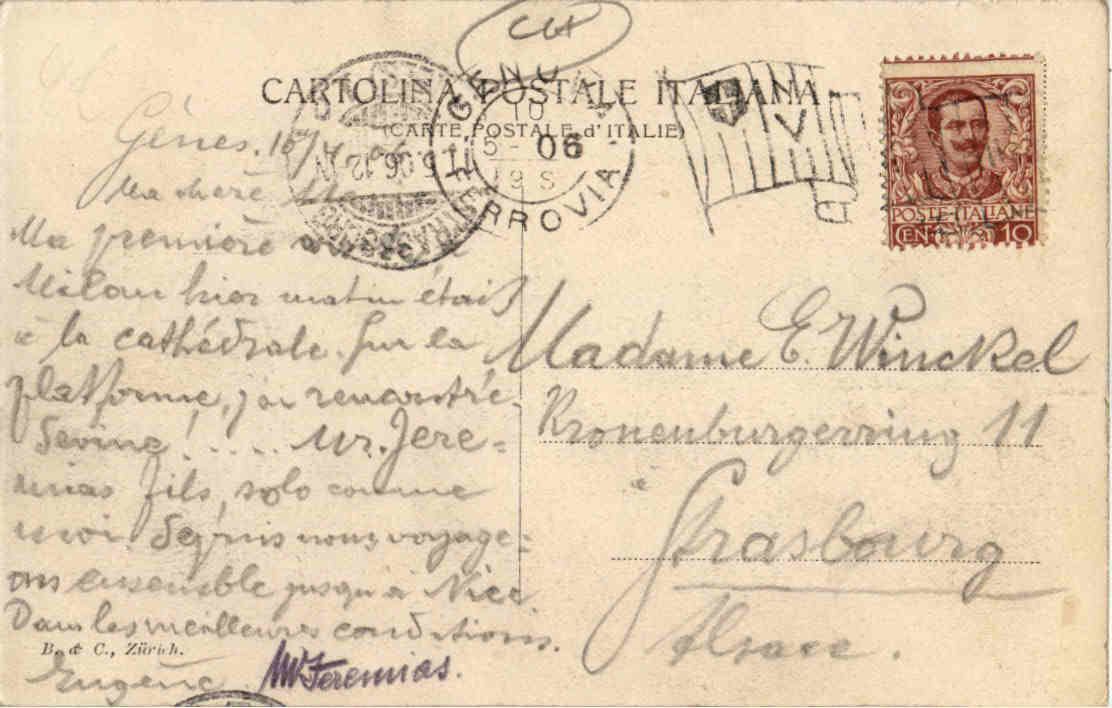 CARTOLINA POSTALE ITALIANA
(CARTE POSTALE d'ITALIE)
GENOVA
FERROVIA
06
POSTE ITALIANE
CENT. 10
Gènes. 16/4
Ma chère
Ma première
Milan hier matin était
à la cathédrale. Sur la
platforme, j'ai rencontré,
devine! ..... Mr. Jere=
mias fils, solo comme
moi. Depuis nous voyage=
ons ensemble jusqu'à Nice.
Dans les meilleures conditions.
Eugène. W Jeremias.
B. & C., Zürich.
Madame E. Winckel
Kronenburgerring 11
Strasbourg
Alsace.